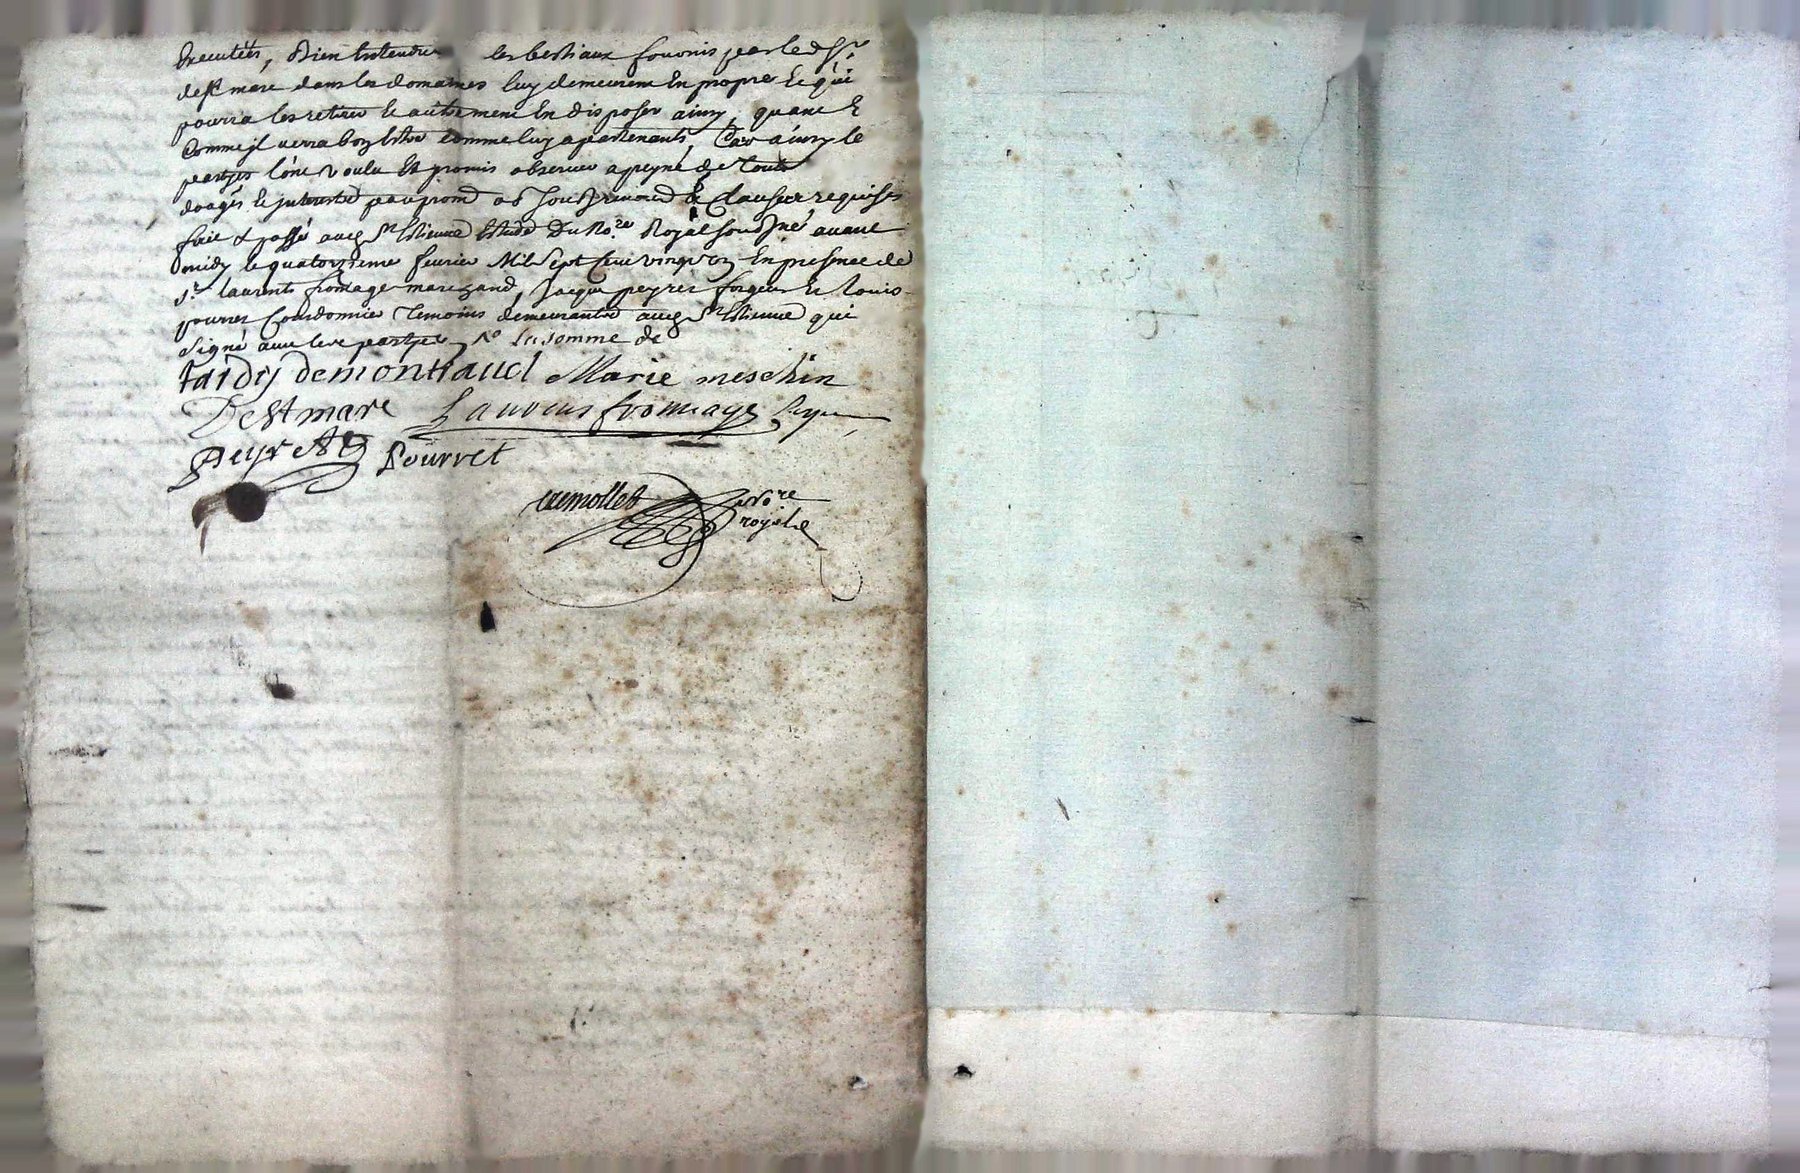 Executées, Bien Entendu les bestiaux fournis par led Sr
de St mare dans les domaines luy demeurent En propre Et qui
pourra les retirer Et autrement En disposer ainsy, quant E
Comme jl verra bon Estre comme luy apartenants, Car ainsy le
partyes l'ont voulu Et promis observer a peyne de touts
fait & passé aud St Estienne Estude Du Nore Royal souSsné avant
midy le quatorzieme feurier Mil Sept Cent vingt En presence de
Sr laurent fromage marchand, Jacque peyret forgeur Et louis
pourret Cordonnier Temoins demeurants aud St Estienne qui
signé avec lese partyes la somme de
tardy demontraucl Marie meschin
De St mare Laurens fromage
peyret Pourret
Nore
royal